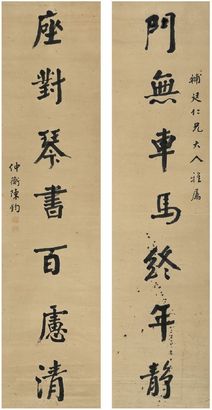 補廷仁兄大人雅屬
門無車馬終年靜
座對琴書百慮清
仲衡陳鈞